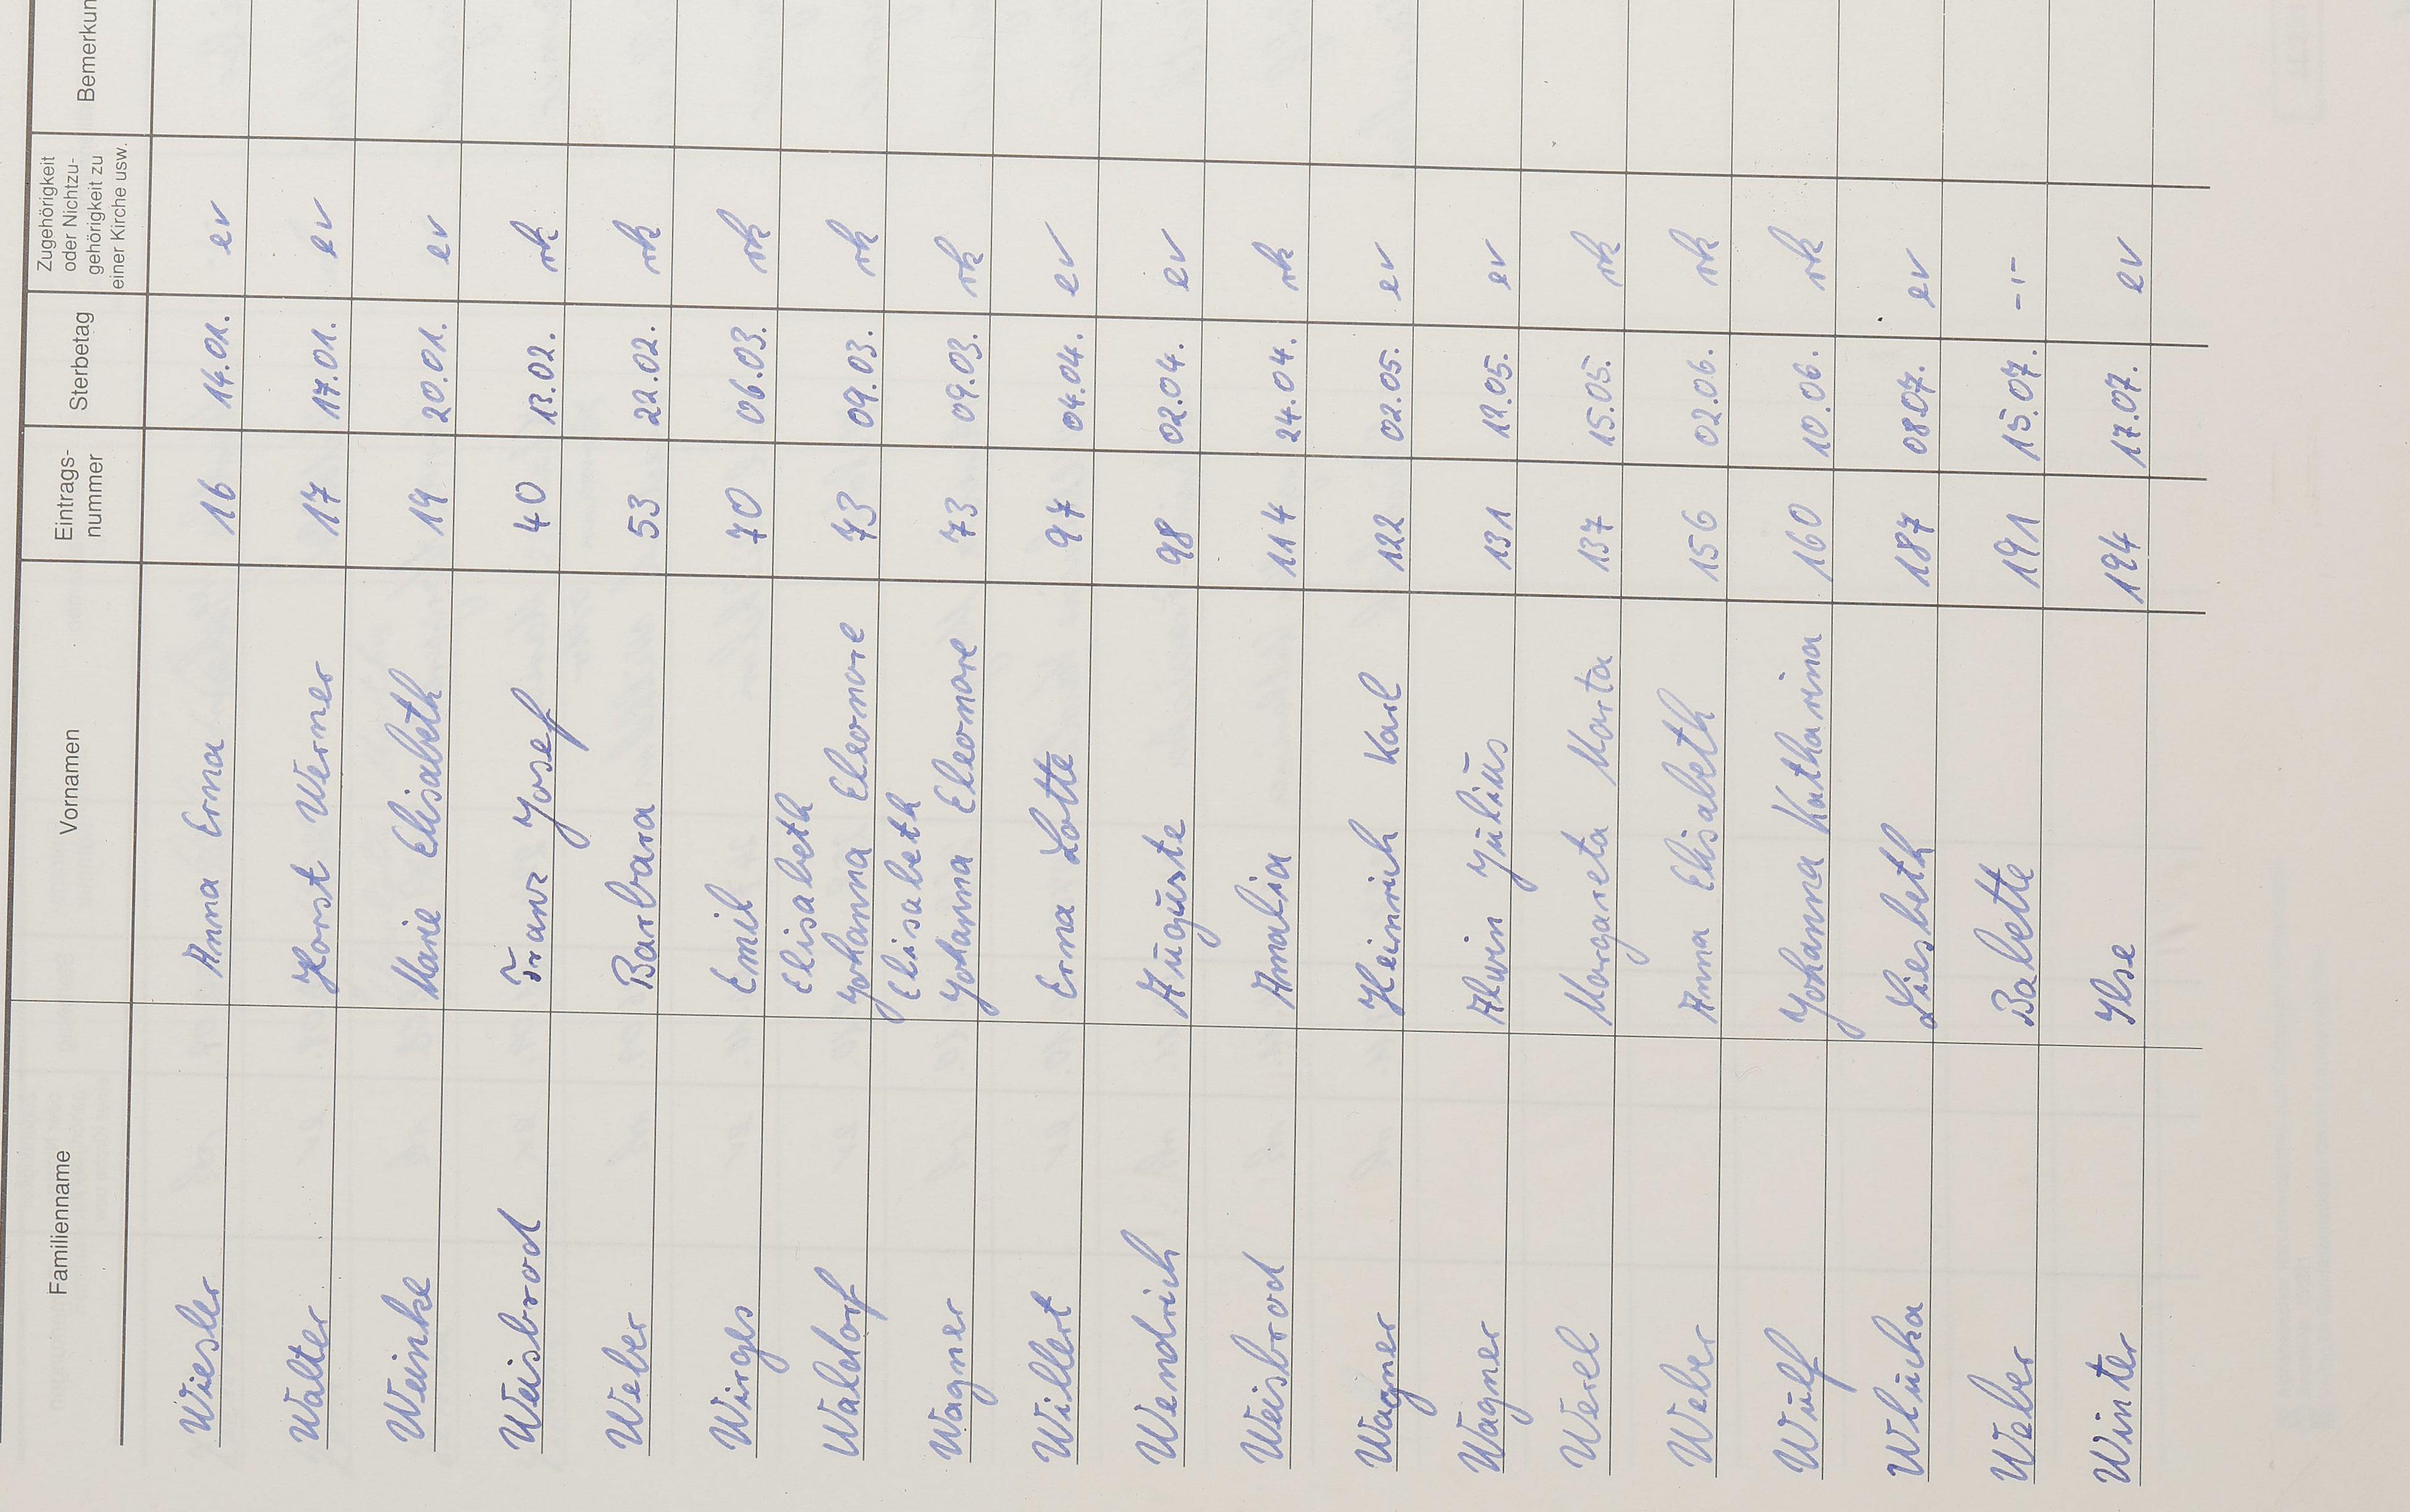 Familienname Vornamen Eintrags-nummer Sterbetag Zugehörigkeit oder Nichtzu-gehörigkeit zu einer Kirche usw. Bemerkun
Wiesler Anna Erna 16 14.01. ev
Walter Horst Werner 17 17.01. ev
Weinke Marie Elisabeth 19 20.01. ev
Weisbrod Franz Josef 40 13.02. rk
Weber Barbara 53 22.02. rk
Wirges Emil 70 06.03. rk
Waldorf Elisabeth Johanna Eleonore 73 09.03. rk
Wagner Elisabeth Johanna Eleonore 73 09.03. rk
Willert Erna Lotte 97 04.04. ev
Wendrich Auguste 98 02.04. ev
Weisbrod Amalia 114 24.04. rk
Wagner Heinrich Karl 122 02.05. ev
Wagner Alwin Julius 131 12.05. ev
Werel Margareta Marta 137 15.05. rk
Weber Anna Elisabeth 156 02.06. rk
Wulf Johanna Katharina 160 10.06. rk
Wlucka Liesbeth 187 08.07. ev
Weber Babette 191 15.07. -.-
Winter Ilse 194 17.07. ev